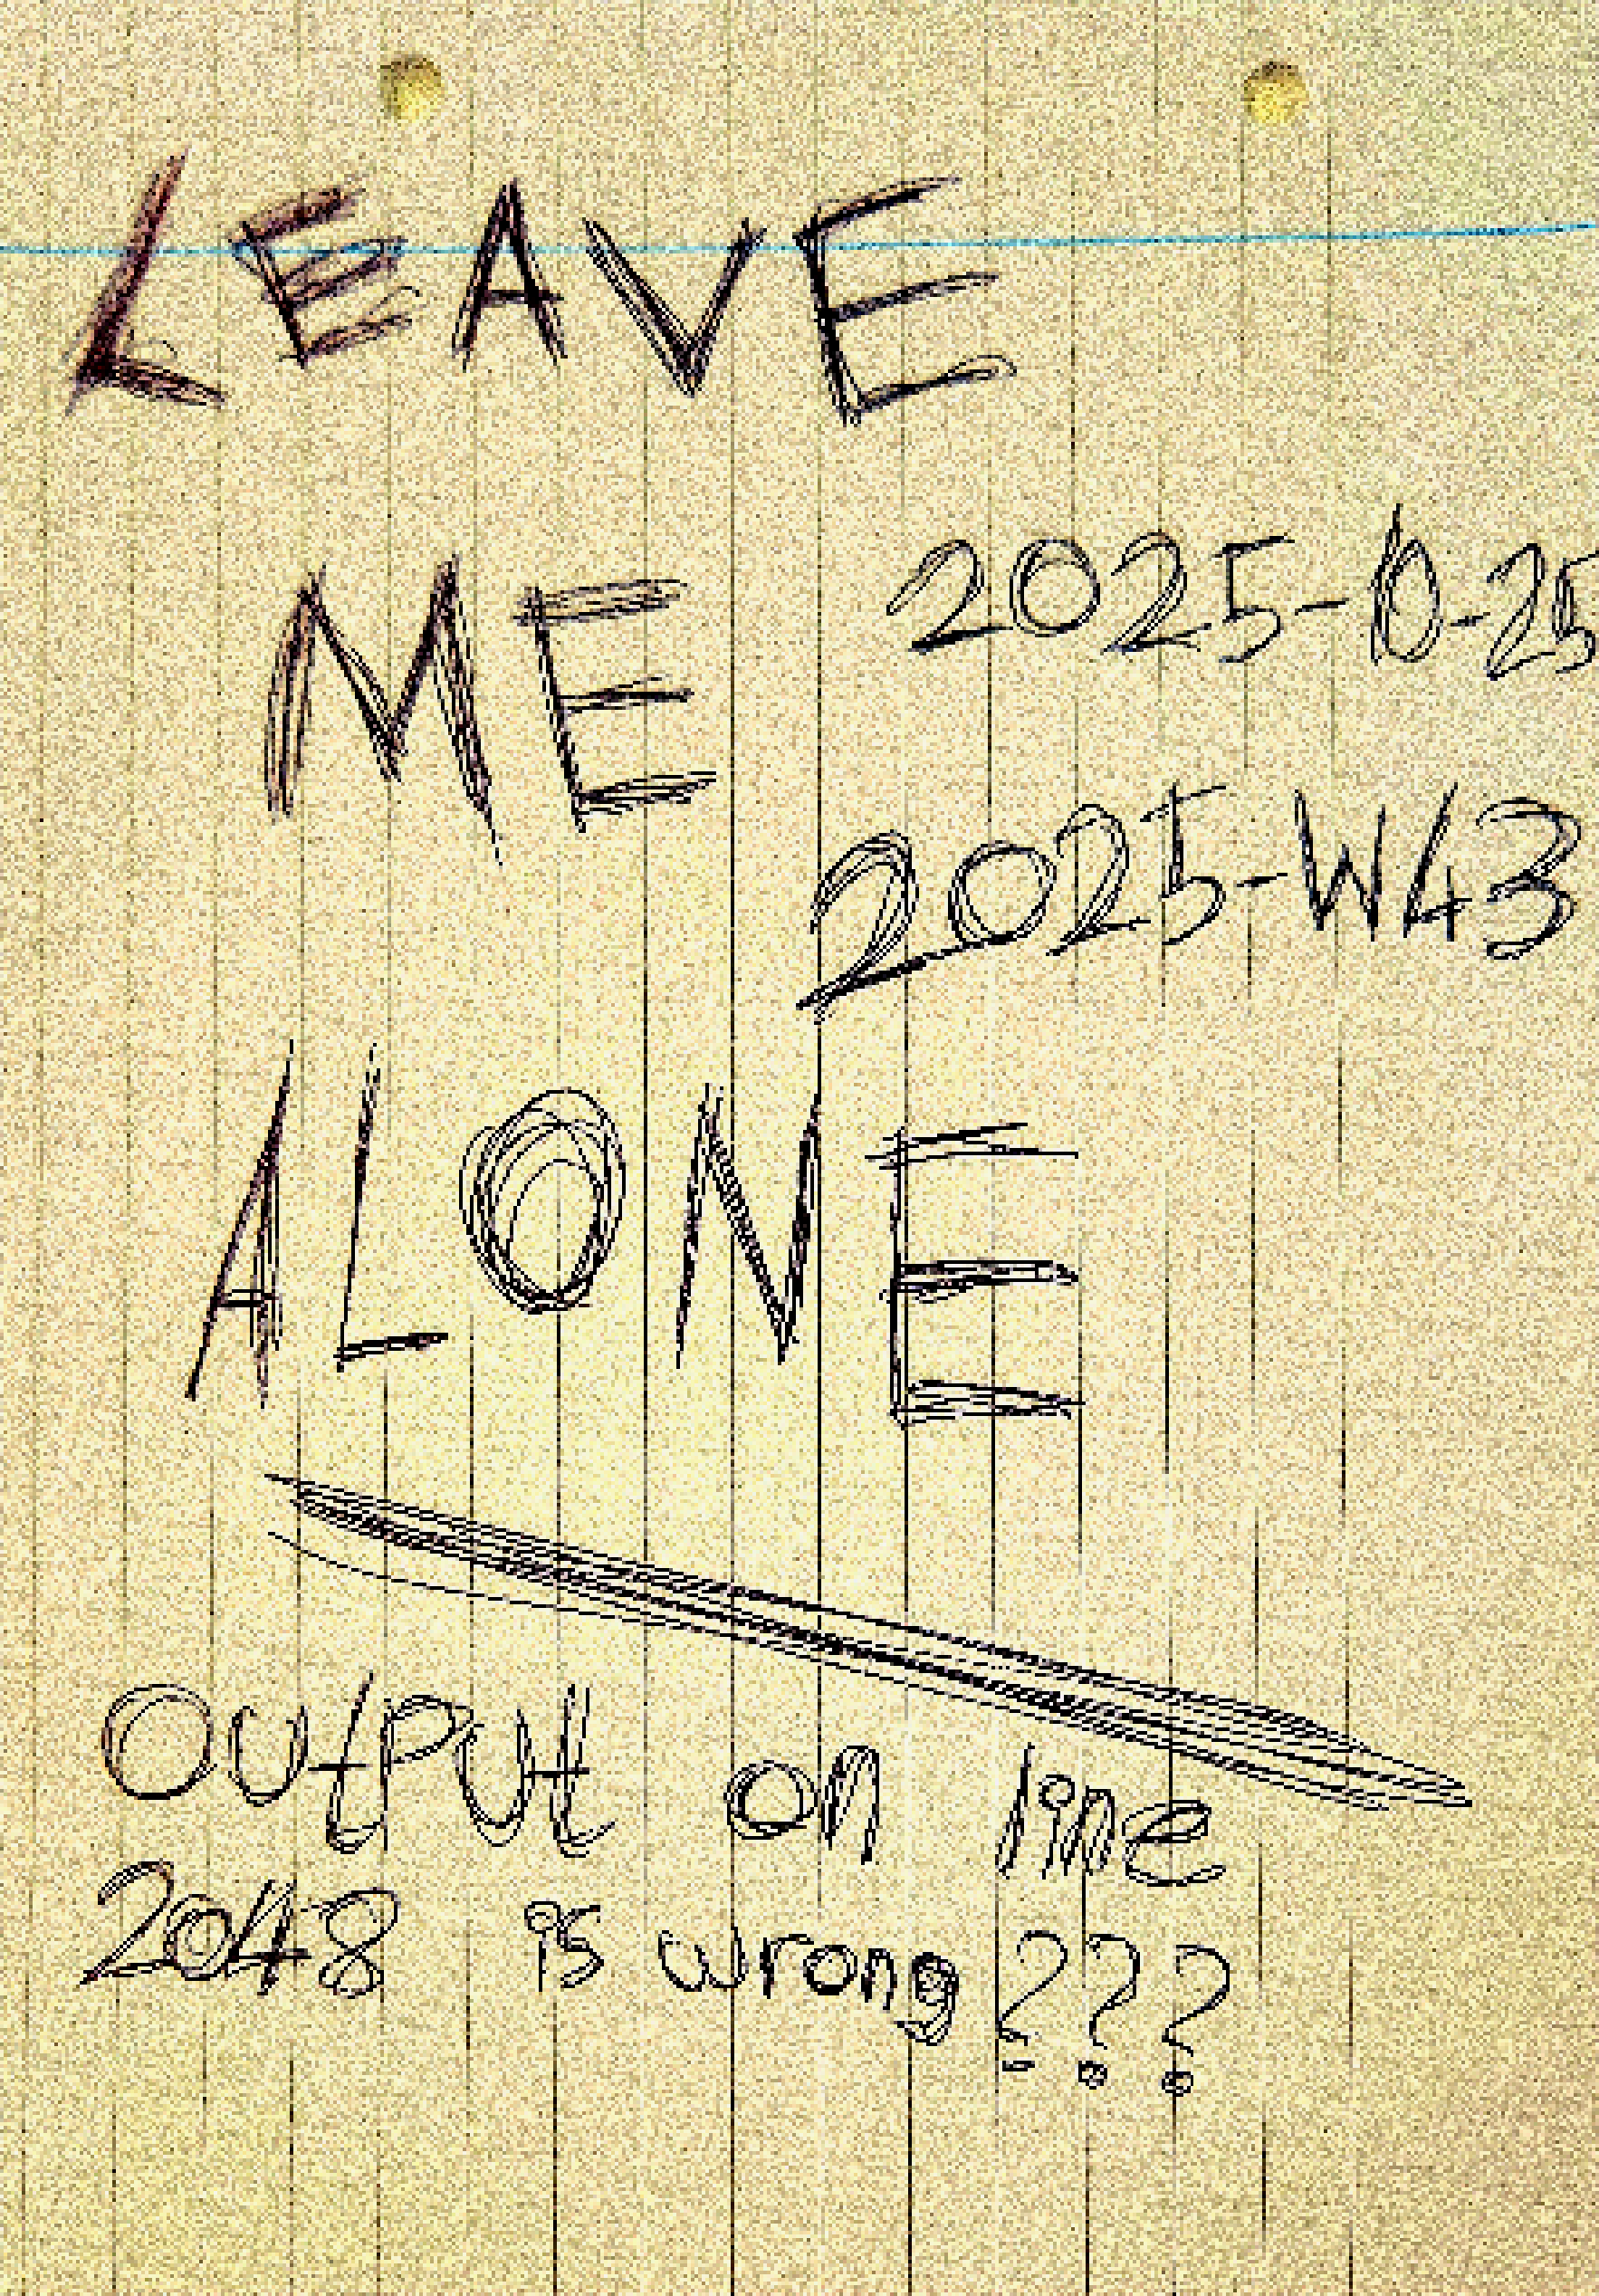 LEAVE
ME
2025-10-25
2025-W43
ALONE
Output on line
2048 is wrong???